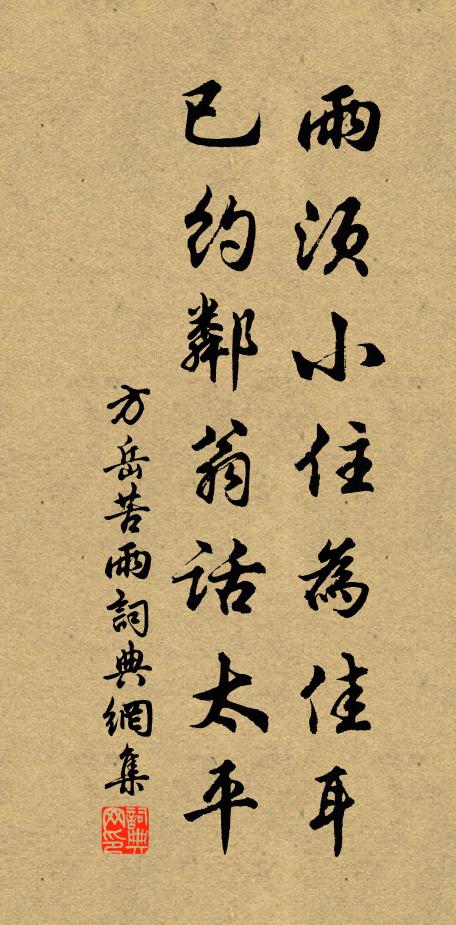 雨須小住為佳耳
已約鄰翁話太平
方岳苦雨詞典網集
詞典網印